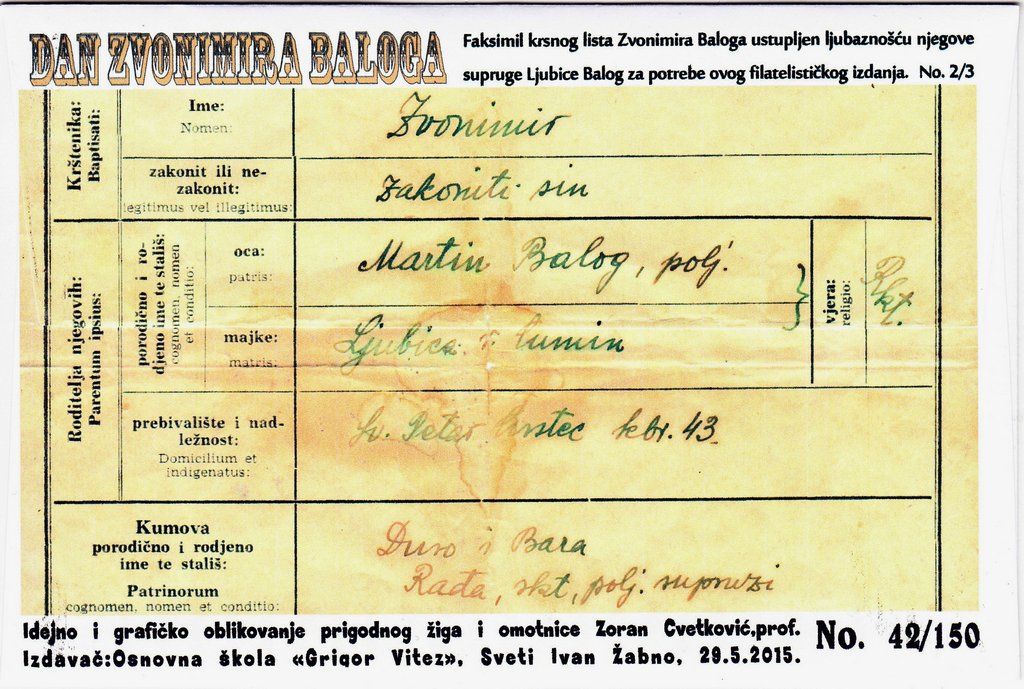 DAN ZVONIMIRA BALOGA
Faksimil krsnog lista Zvonimira Baloga ustupljen ljubaznošću njegove
supruge Ljubice Balog za potrebe ovog filatelističkog izdanja. No. 2/3
Krštenika:
Baptisati:
Ime:
Nomen:
Zvonimir
zakonit ili ne-
zakonit:
legitimus vel illegitimus:
zakoniti sin
Roditelja njegovih:
Parentum ipsius:
porodično i ro-
djeno ime te stališ:
cognomen, nomen
et conditio:
oca:
patris:
Martin Balog, polj.
majke:
matris:
Ljubica r.
vjera:
religio:
Rkt.
prebivalište i nad-
ležnost:
Domicilium et
indigenatus:
Sv. Petar Čvrstec kbr. 43
Kumova
porodično i rodjeno
ime te stališ:
Patrinorum
cognomen, nomen et conditio:
Đuro i Bara
Rađa, skt, polj. supruzi
Idejno i grafičko oblikovanje prigodnog žiga i omotnice Zoran Cvetković,prof.
Izdavač:Osnovna škola «Grigor Vitez», Sveti Ivan Žabno, 29.5.2015.
No. 42/150